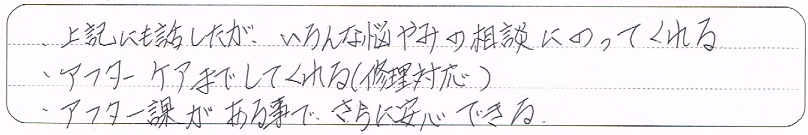 ・上記にも話したが、いろんな悩やみの相談にのってくれる
・アフターケアまでしてくれる(修理対応)
・アフター課がある事で、さらに安心できる。